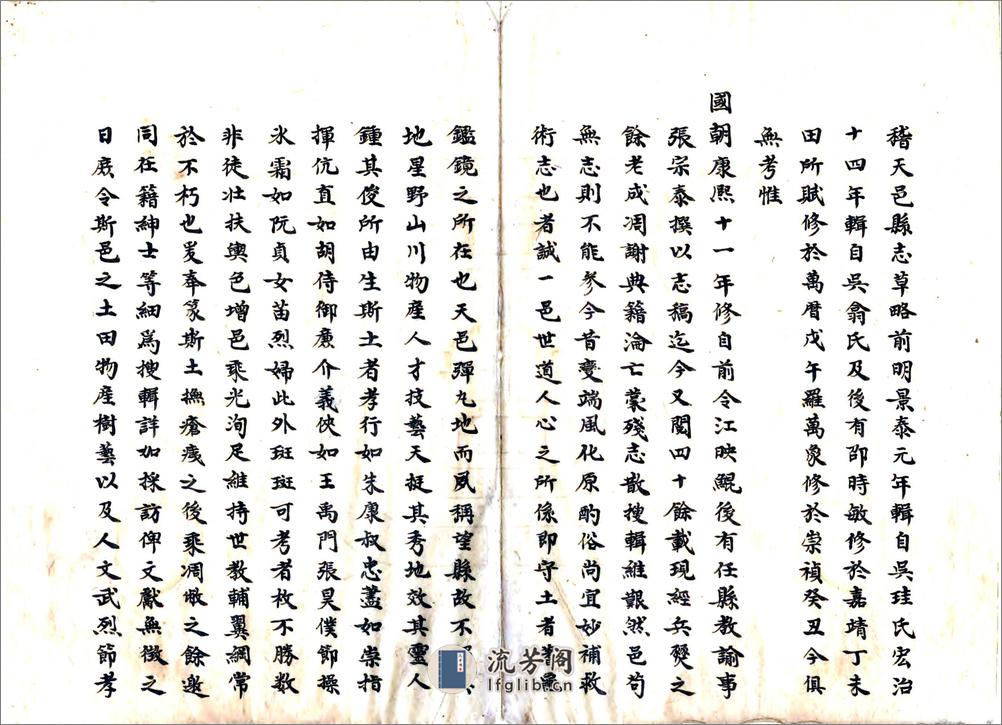 稽天邑縣志草略前明景泰元年輯自吳珪氏宏治
十四年輯自吳翕氏及後有邵時敏修於嘉靖丁未
田所賦修於萬曆戊午羅萬象修於崇禎癸丑今俱
無考惟
國朝康熙十一年修自前令江映鯤後有任縣教諭事
張宗泰撰以志稿迄今又閱四十餘載現經兵燹之
餘老成凋謝典籍淪亡蒙殘志散搜輯維艱然邑苟
無志則不能參今昔變端風化原酌俗尚宜妙補救
術志也者誠一邑世道人心之所係即守土者
鑑鏡之所在也天邑彈丸地而夙稱望縣故不
地星野山川物產人才技藝天挺其秀地效其靈人
鍾其俊所由生斯土者孝行如朱康叔忠藎如崇指
揮伉直如胡侍御廉介義俠如王禹門張昊僕節操
氷霜如阮貞女苗烈婦此外斑斑可考者枚不勝數
非徒壮扶輿色增邑乘光洵足維持世教輔翼綱常
於不朽也爰奉篆斯土撫瘡痍之後乘凋敝之餘邀
同在籍紳士等細爲搜輯詳加採訪俾文獻無徵之
日庶令斯邑之土田物產樹藝以及人文武烈節孝
流芳閣
lfglib.cn